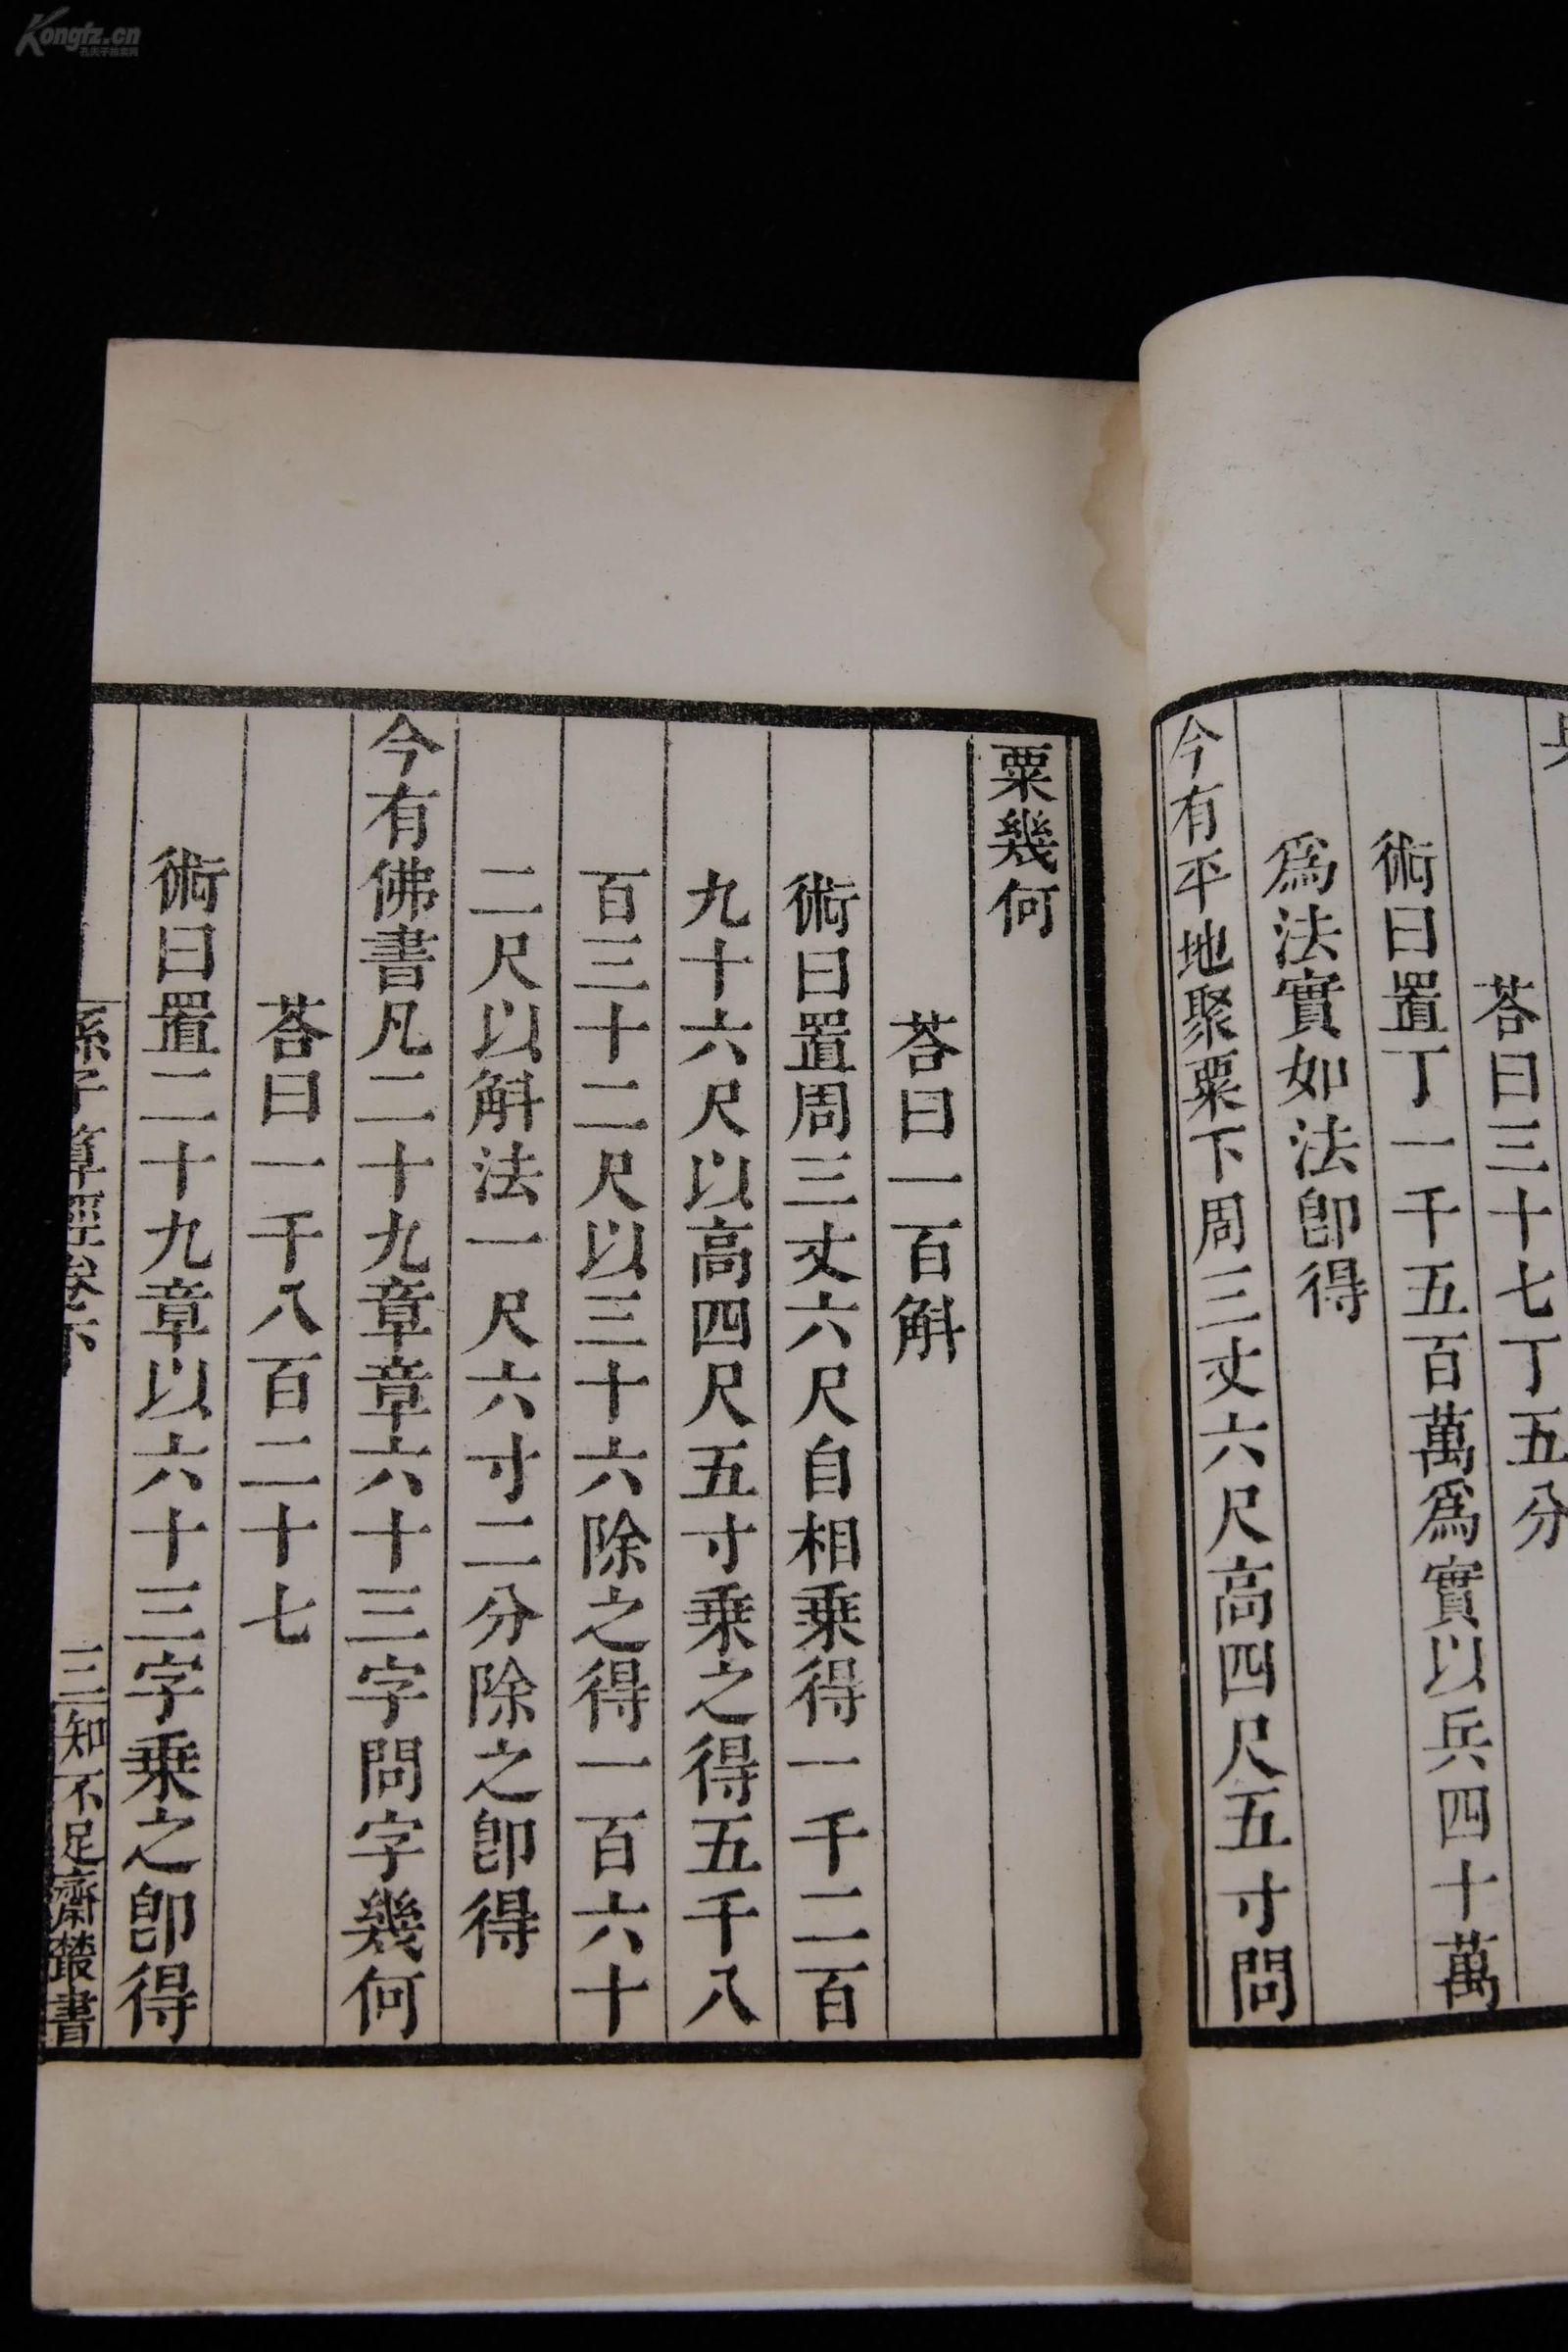 Kongfz.cn
答曰三十七丁五分
術曰置丁一千五百萬爲實以兵四十萬
爲法實如法卽得
今有平地聚粟下周三丈六尺高四尺五寸問
粟幾何
荅曰一百斛
術曰置周三丈六尺自相乗得一千二百
九十六尺以高四尺五寸乗之得五千八
百三十二尺以三十六除之得一百六十
二尺以斛法一尺六寸二分除之卽得
今有佛書凡二十九章章六十三字問字幾何
荅曰一千八百二十七
術曰置二十九章以六十三字乗之卽得
孫子算經卷下 三 知不足齋叢書